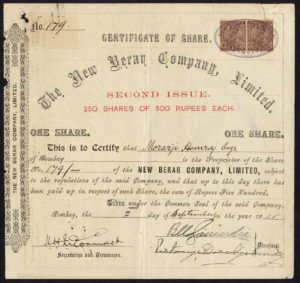 No. 179
CERTIFICATE OF SHARE.
The New Berar Company, Limited.
SECOND ISSUE.
250 SHARES OF 500 RUPEES EACH.
ONE SHARE. ONE SHARE.
This is to Certify that Morarji
of Bombay is the Proprietor of the Share
No. 179/- of the NEW BERAR COMPANY, LIMITED, subject to
the regulations of the said Company, and that up to this day there has
been paid up in respect of such Share, the sum of Rupees Five Hundred,
Given under the Common Seal of the said Company,
Bombay, the 2 day of September in the year 19
Secretaries and Treasurers.
THE NEW BERAR COMPANY, LIMITED.